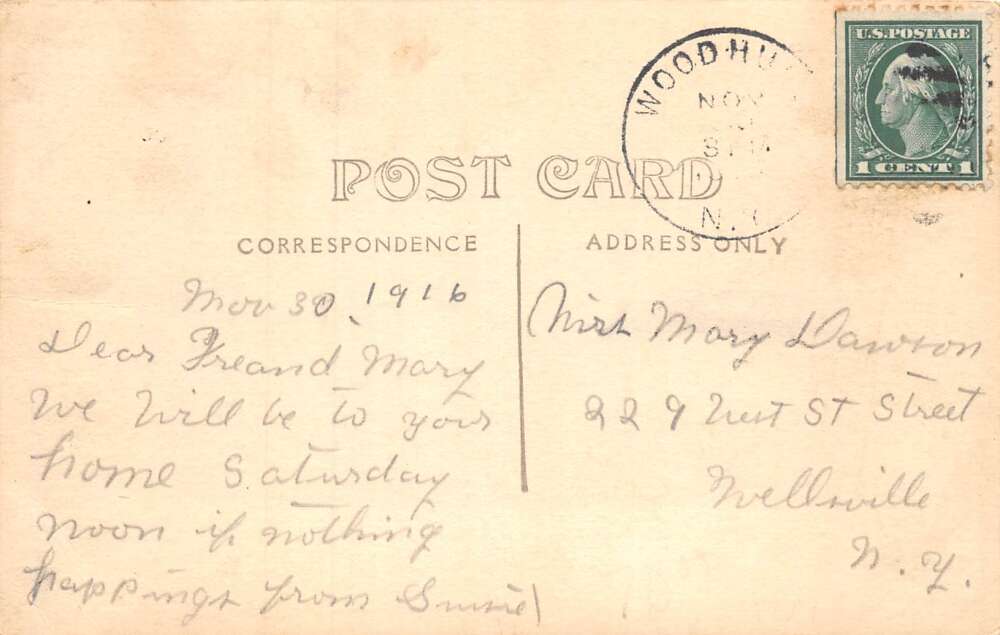 WOODHU
NOV
N.Y
U.S. POSTAGE
1 CENT 1
POST CARD
CORRESPONDENCE
ADDRESS ONLY
Nov 30, 1916
Dear Freand Mary
We Will be to your
home Saturday
noon if nothing
happings from Susie
Miss Mary Dawson
229 West St Street
Wellsville
N.Y.